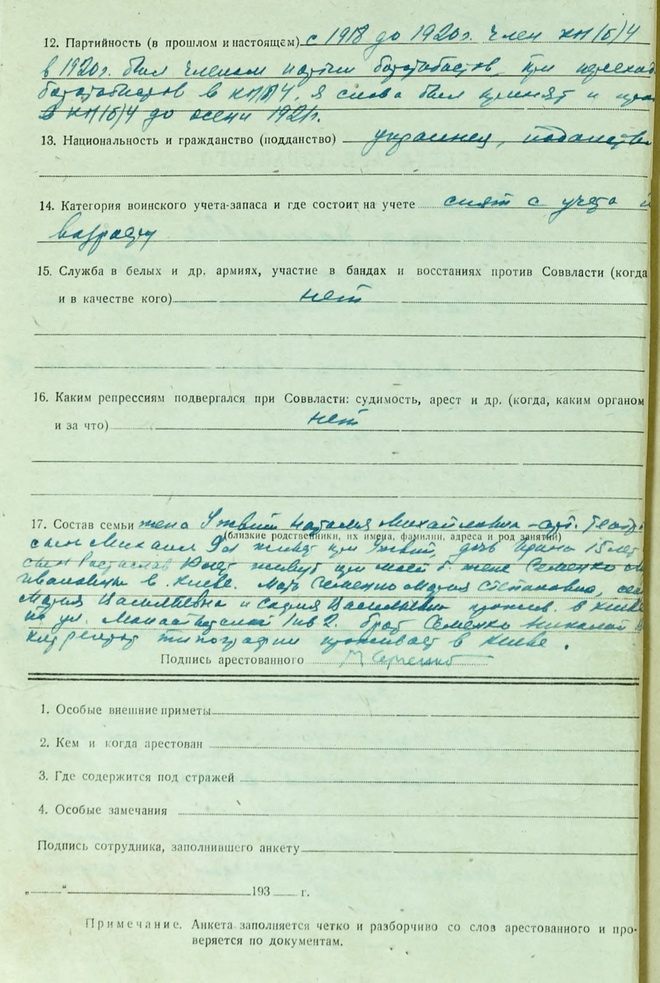 12. Партийность (в прошлом и настоящем) с 1918 до 1920г. член КП(б)У
в 1920г. был членом партии боротьбистов, при
боротьбистов в КП(б)У, я снова был принят и
в КП(б)У до осени 1921г.
13. Национальность и гражданство (подданство) украинец, подданство
14. Категория воинского учета-запаса и где состоит на учете снят с учета
возрасту
15. Служба в белых и др. армиях, участие в бандах и восстаниях против Соввласти (когда
и в качестве кого) нет
16. Каким репрессиям подвергался при Соввласти: судимость, арест и др. (когда, каким органом
и за что) нет
17. Состав семьи жена Ужвий Наталия Михайловна - арт. театр.
(близкие родственники, их имена, фамилии, адреса и род занятий)
сын Михаил живет при Ужвий, дочь Ирина 15 лет
сын Ростислав живут при моей б. жене Семенко
Ивановны в Киеве. Мать Семенко Мария Степановна,
Мария Васильевна и Васильевич в Киеве
по ул. 2. брат Семенко Николай
корректор типографии проживает в Киеве.
Подпись арестованного М Семенко
1. Особые внешние приметы
2. Кем и когда арестован
3. Где содержится под стражей
4. Особые замечания
Подпись сотрудника, заполнившего анкету
„ “ 193 г.
Примечание. Анкета заполняется четко и разборчиво со слов арестованного и про-
веряется по документам.